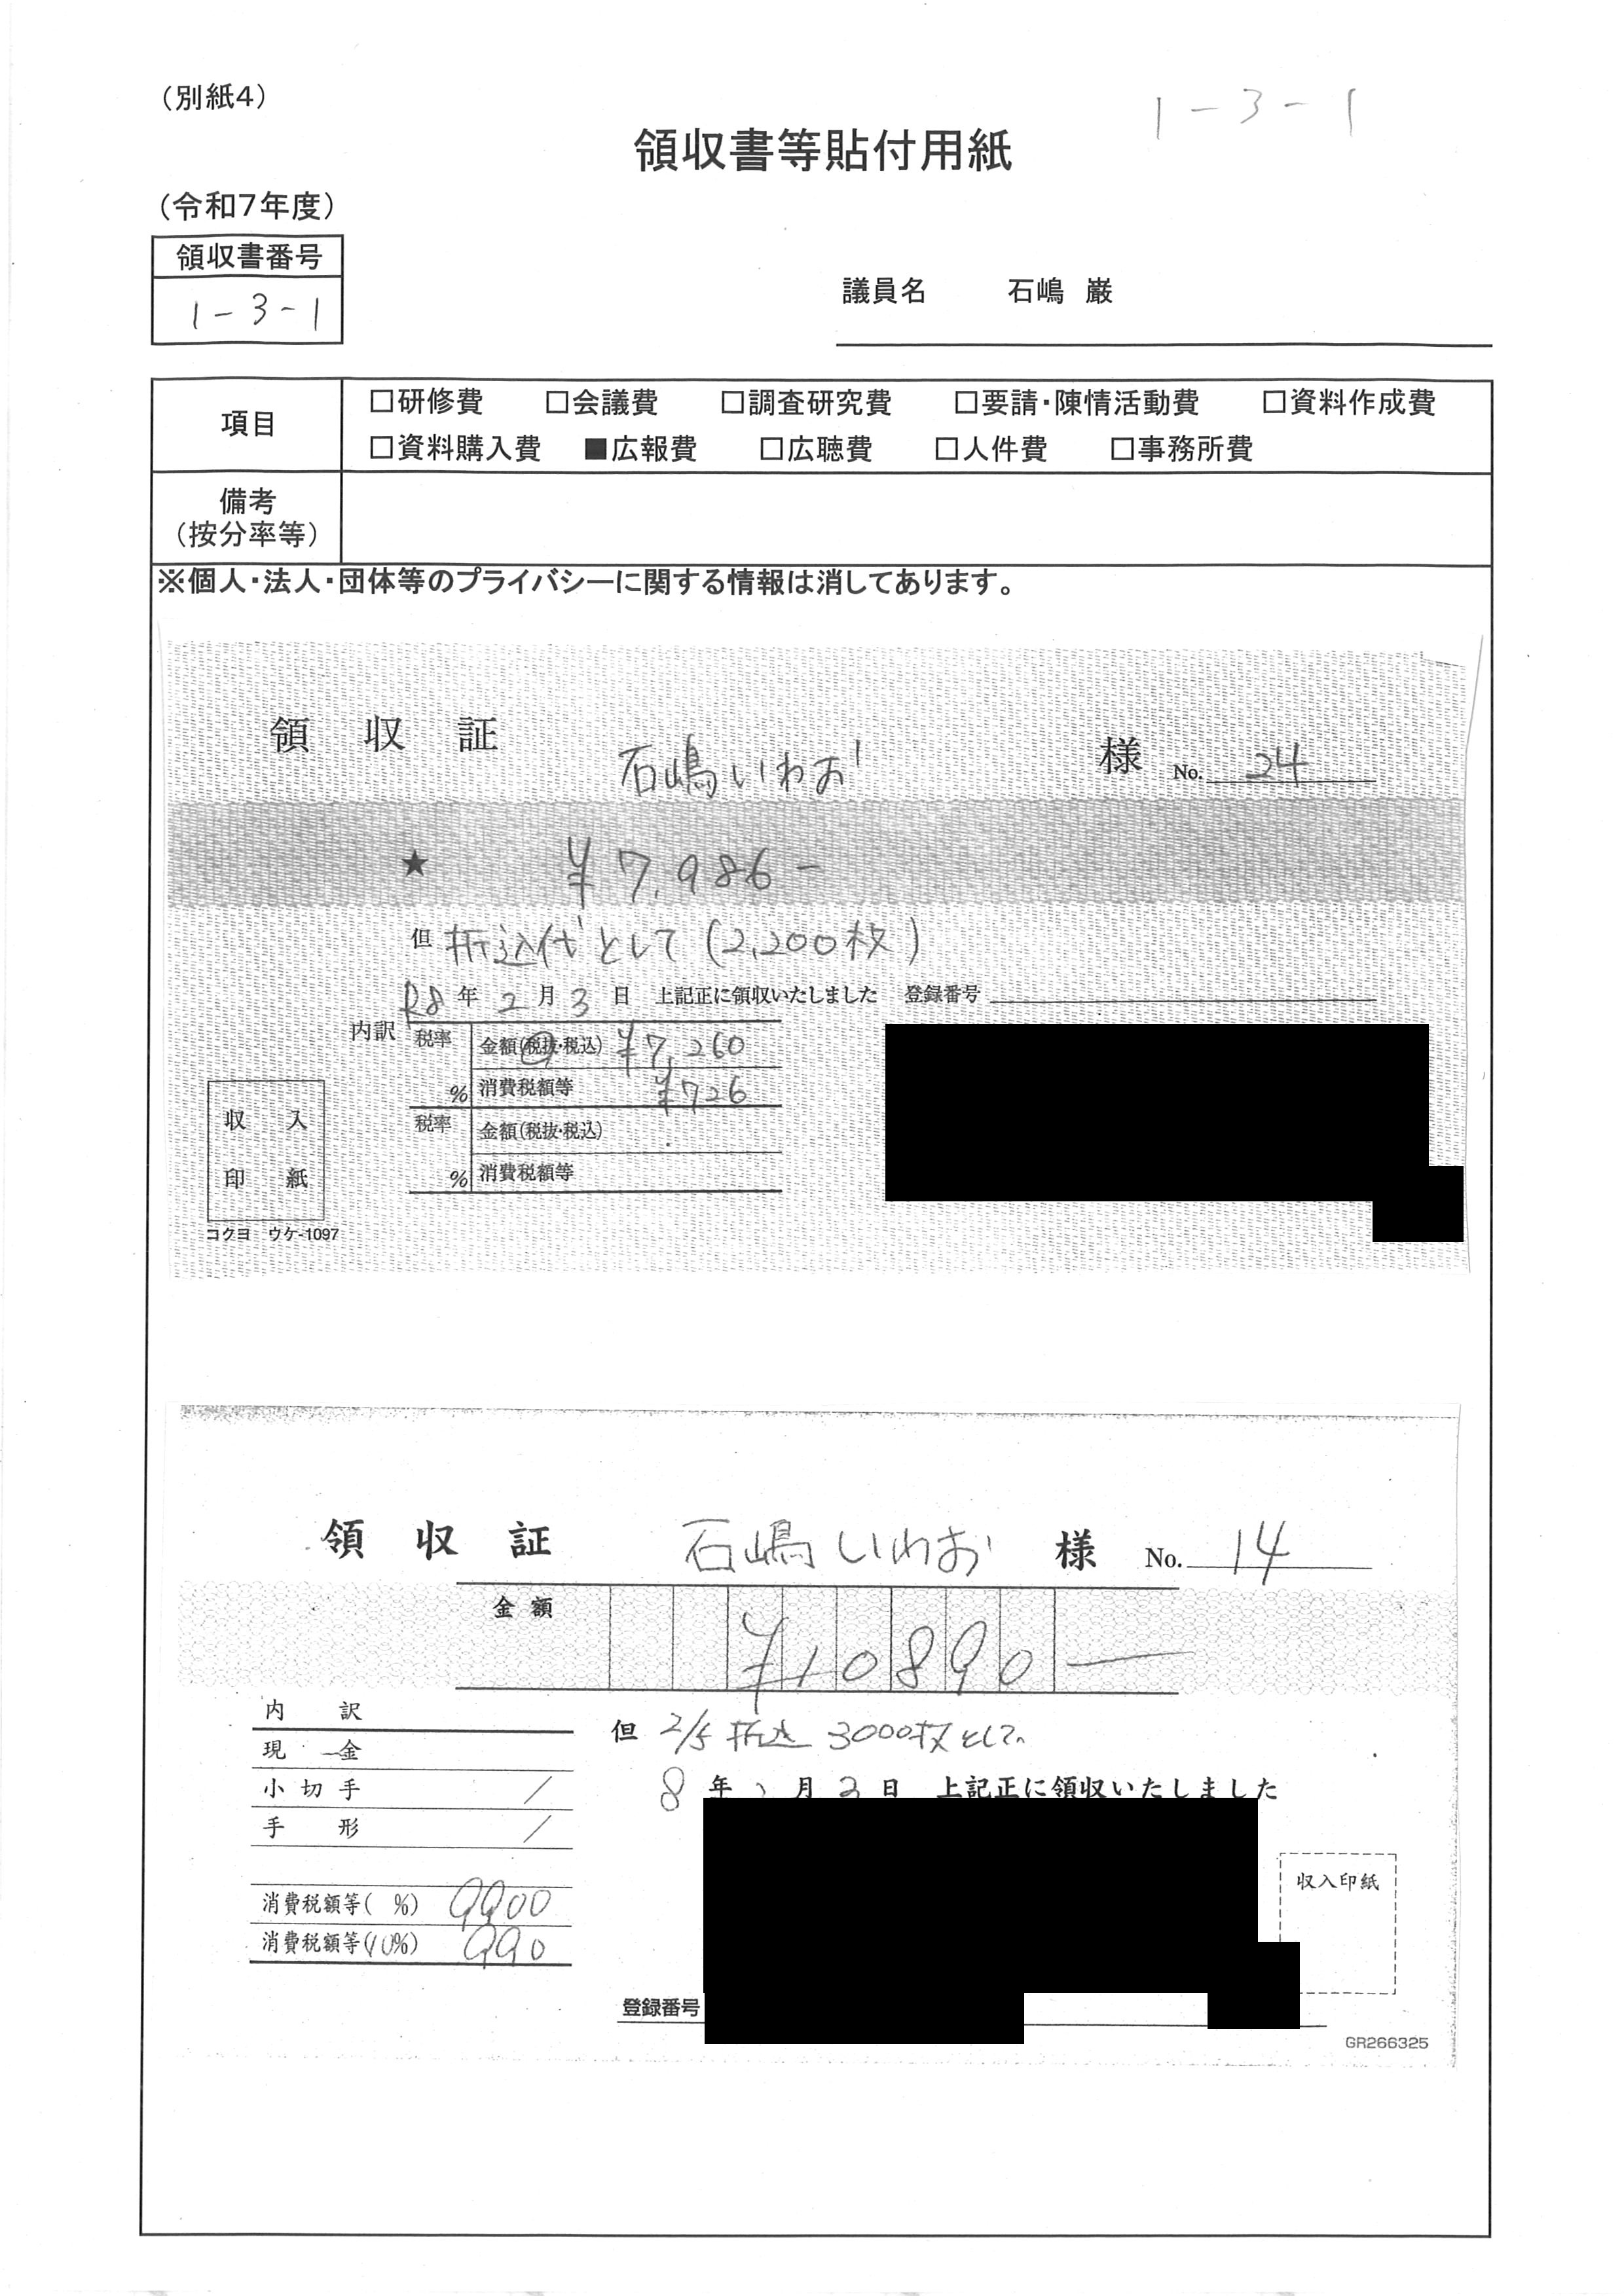 (別紙4)
1-3-1
領収書等貼付用紙
(令和7年度)
領収書番号
1-3-1
議員名 石嶋 巌
項目
□研修費 □会議費 □調査研究費 □要請・陳情活動費 □資料作成費
□資料購入費 ■広報費 □広聴費 □人件費 □事務所費
備考
(按分率等)
※個人・法人・団体等のプライバシーに関する情報は消してあります。
領収証 石嶋いわお 様 No. 24
★ ¥7,986-
但 折込代として(2,200枚)
R8年2月3日 上記正に領収いたしました 登録番号
内訳 税率 金額(税抜・税込) ¥7,260
% 消費税額等 ¥726
税率 金額(税抜・税込)
% 消費税額等
収入
印紙
コクヨ ウケ-1097
領収証 石嶋いわお 様 No. 14
金額 ¥10890-
内訳
現金
小切手
手形
但 2/5 折込 3000枚として
8年 月 日 上記正に領収いたしました
消費税額等( %) 9900
消費税額等(10%) 990
収入印紙
登録番号
GR266325